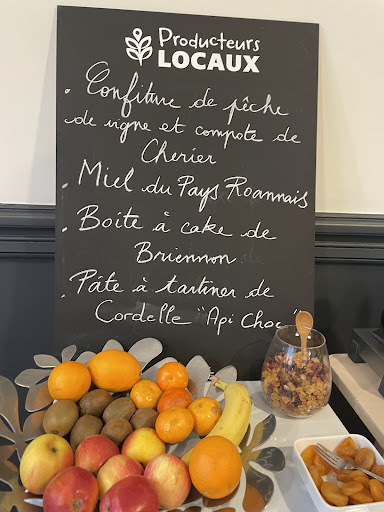 Producteurs
LOCAUX
. Confiture de pêche
de vigne et compote de
Cherier
. Miel du Pays Roannais
. Boite à cake de
Briennon
. Pâte à tartiner de
Cordelle "Api Choc"